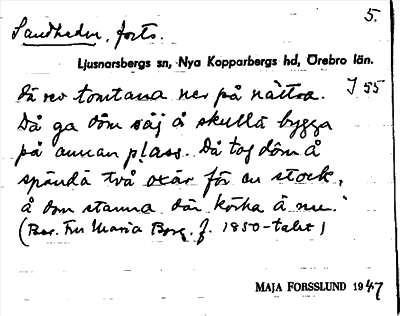 5.
Sandheden, forts.
Ljusnarsbergs sn, Nya Kopparbergs hd, Örebro län.
då rev tomtana ner på nättra. J 55
Då ga dôm säj å skullä bygga
på annan plass. Då tog dôm å
spände två oxär för en stock,
å dom stanna där körka ä nu."
(Ber. Fru Maria Borg, f. 1850-talet)
MAJA FORSSLUND 1947